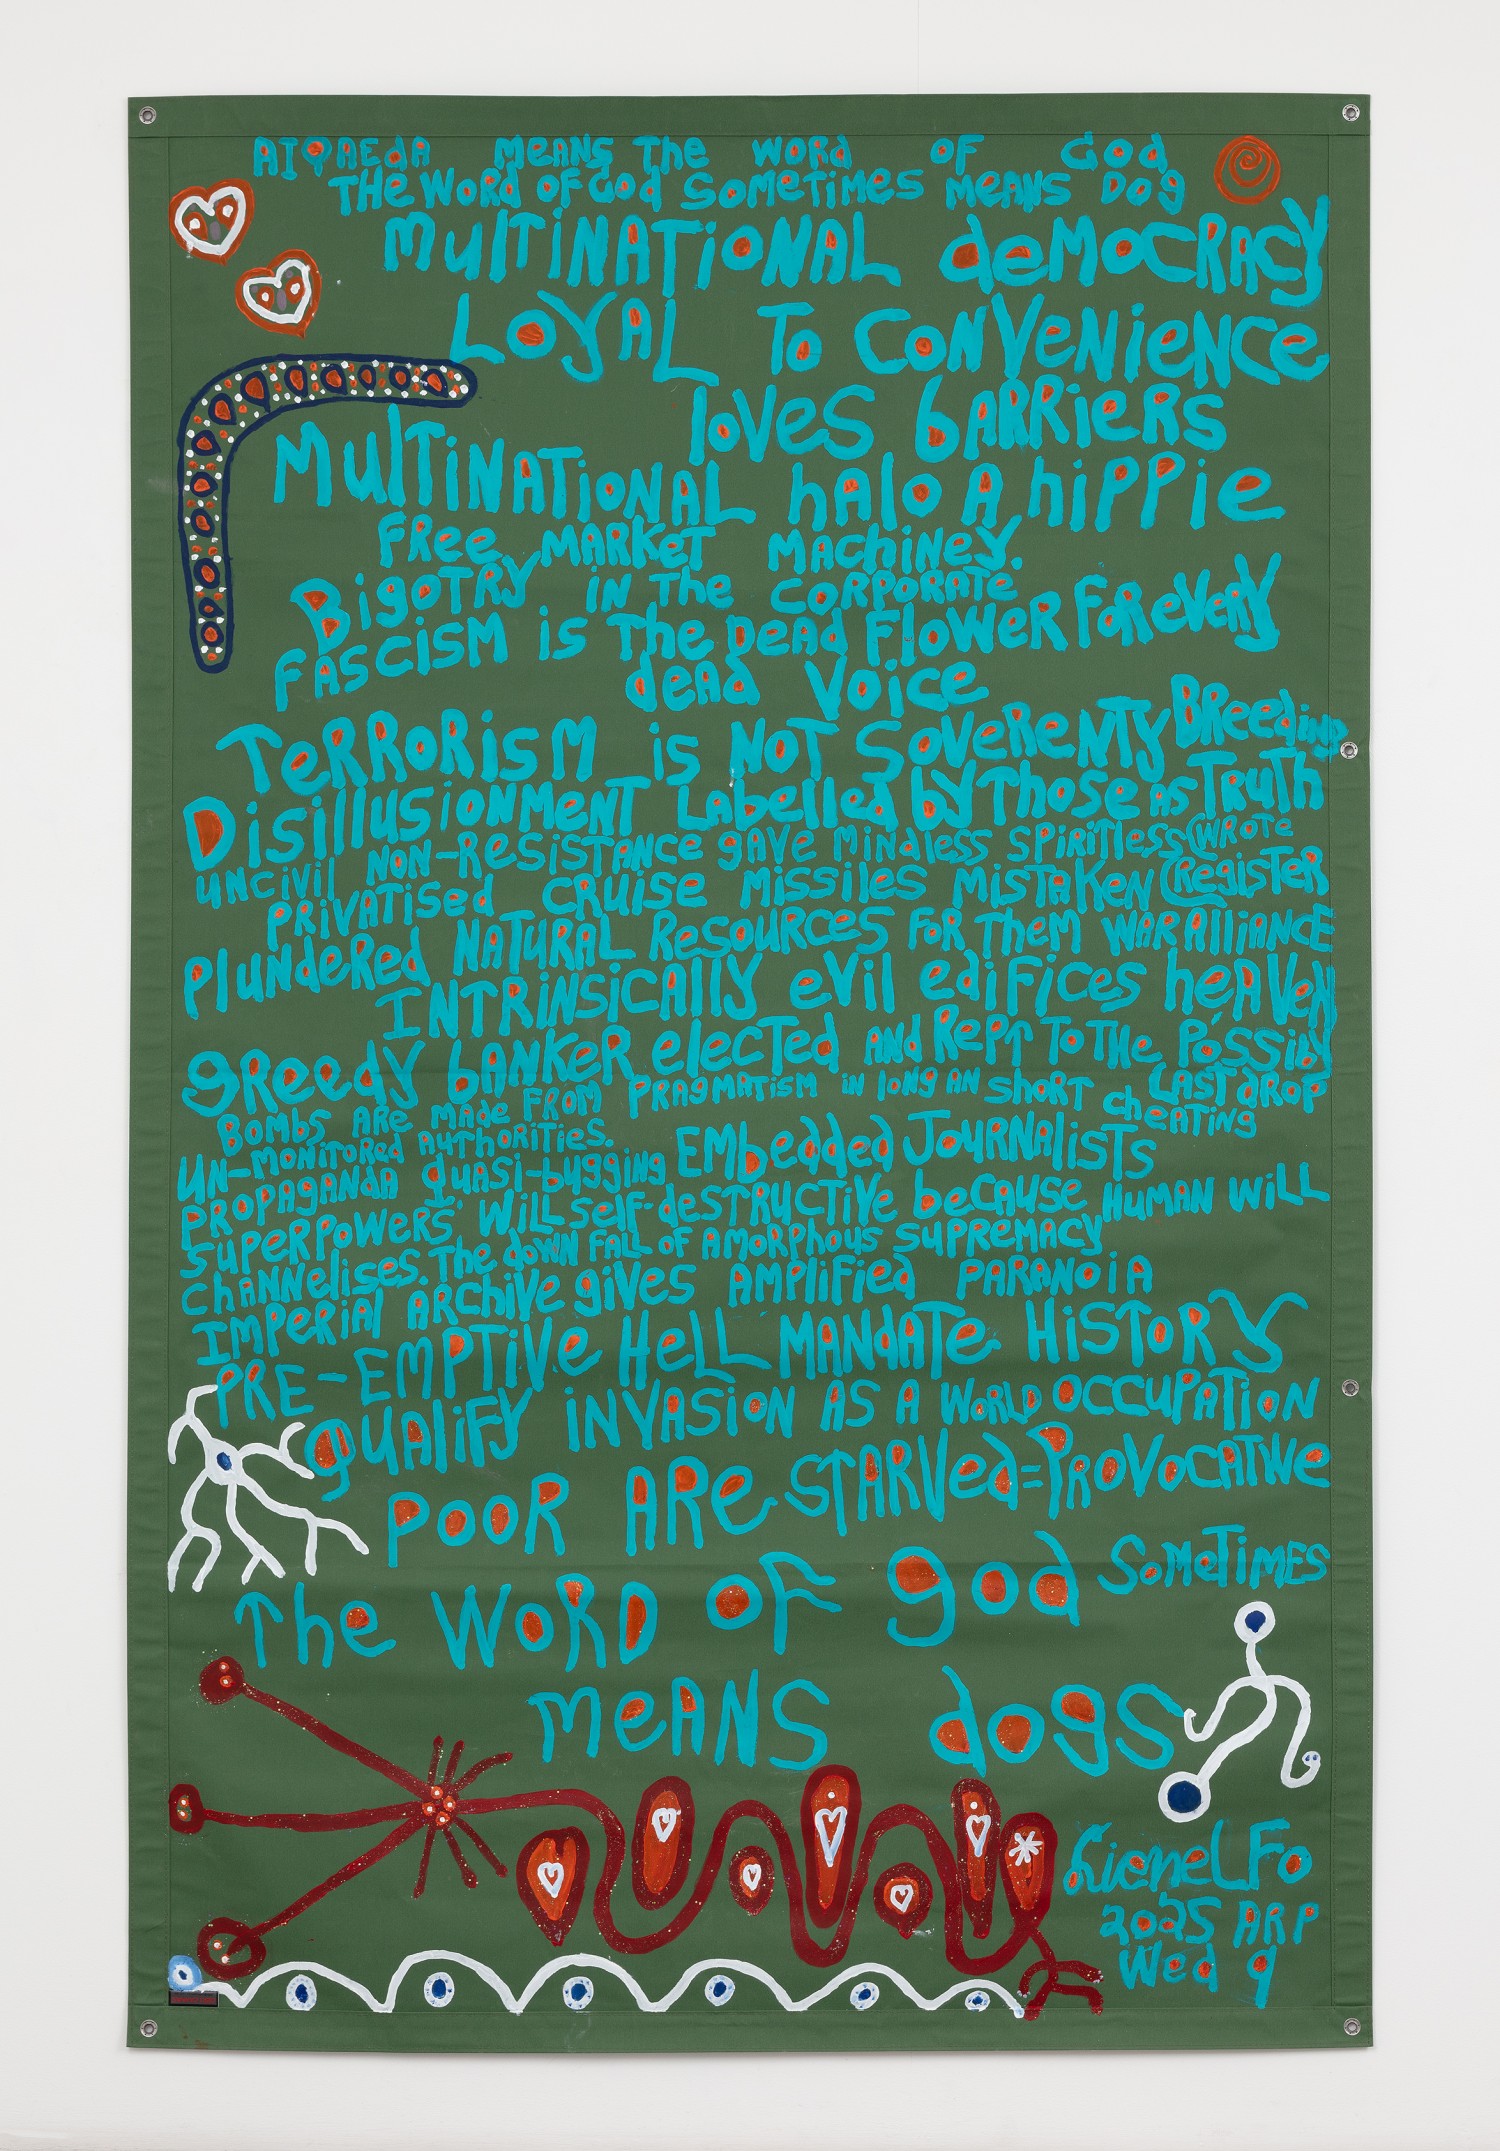 AIQAEdA MEANS The WORd OF God
THE WORD OF God SOMETIMES MEANS DOg
MulTINATiONAL deMOCRACy
LOyAL To CONVeNieNce
loves bARRiers
MulTiNATioNAL hAlo A hippie
FRee MARKeT MAChiNey.
BigOTRY iN The CORPORATe
FASCiSM iS The DEAd FlOWER FOR eVeRy
deAd VOice
TeRRORiSM iS NOT SOVeReNTY BReeding
DisillusioNMeNT LAbelled by Those AS TRuTh
UNCiVil NON-ResisTANCe gAVe MiNdless SpiRiTless (WROTe
PRiVATised CRuise Missiles MisTAKeN (RegisTeR
PlUNdeRed NATURAL ResOURCes FOR TheM WAR AlliANCE
INTRiNSiCAlly eVil edifices heAVeN
gReedy bANKeR elecTed ANd RepT To The Possibly
LAST dROP
BOMbS ARe MAde FROM PRAgMATiSM iN loNg AN ShORT CheATiNg
UN-MONiTORed AUThORiTies. EMbedded JOURNAliSTS
PROPAgANdA QUASi-bUggiNg
SUPERPOWERS' WiLL Self-desTRUCTiVe beCAUSe HUMAN WiLL
ChANNelises. The dOWN FALL OF AMORPhOUS SUPREMACY
IMPeRiAl ARChiVe giVes AMPlified PARANOiA
PRE-EMPTiVe HeLL MANdATe HiSTORY
QUAliFy iNVASiON AS A WORLD OCCUPATiON
POOR ARe STARVed=PROVOCATiVe
The WORD OF god SOMeTIMES
MeANS dogs
LioneL Fo
2025 ARP
Wed 9